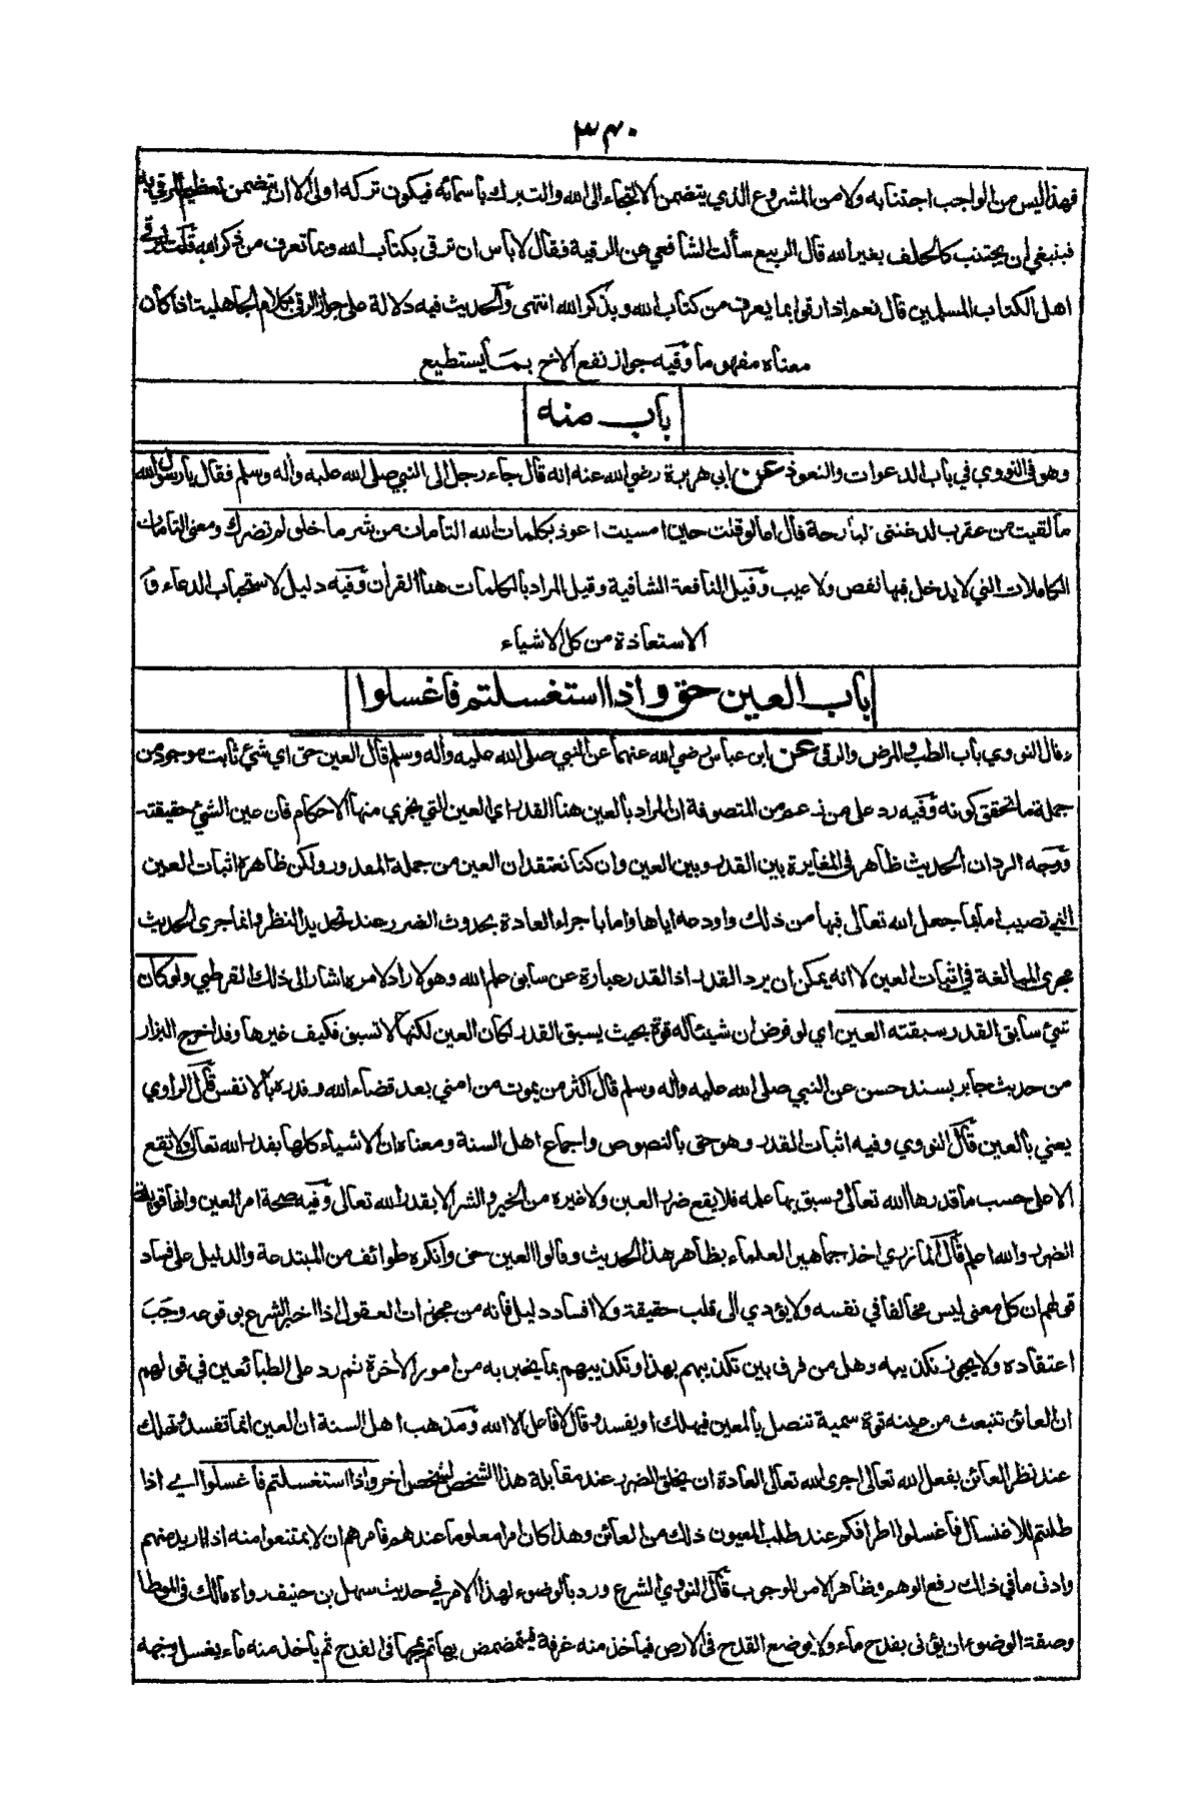 ٣٤٠
فهذا ليس من الواجب اجتنابه ولا من المشروع الذي يتضمن الالتجاء الى الله والتبرك بأسمائه فيكون تركه اولى الا ان يتضمن تعظيم المرقي به
فينبغي ان يجتنب كالحلف بغير الله قال الربيع سألت الشافعي عن الرقية فقال لا بأس ان ترقى بكتاب الله وبما تعرف من ذكر الله قلت أيرقي
اهل الكتاب المسلمين قال نعم اذا رقوا بما يعرف من كتاب الله وبذكر الله انتهى وفي الحديث فيه دلالة على جواز الرقى بكلام الجاهلية اذا كان
معناه مفهوما وفيه جواز نفع الاخ بما يستطيع
باب منه
وهو في النووي في باب الدعوات والتعوذ عن ابي هريرة رضي الله عنه انه قال جاء رجل الى النبي صلى الله عليه وأله وسلم فقال يا رسول الله
ما لقيت من عقرب لدغتني البارحة قال اما لو قلت حين امسيت اعوذ بكلمات الله التامات من شر ما خلق لم تضرك ومعنى التامات
الكاملات التي لا يدخل فيها نقص ولا عيب وقيل النافعة الشافية وقيل المراد بالكلمات هنا القرأن وفيه دليل لاستحباب الدعاء و
الاستعاذة من كل الاشياء
باب العين حق واذا استغسلتم فاغسلوا
وقال النووي باب الطب والمرض والرقى عن ابن عباس رضي الله عنهما عن النبي صلى الله عليه وأله وسلم قال العين حق اي شيء ثابت موجود من
جملة ما تحقق كونه وفيه رد على من زعم من المتصوفة ان المراد بالعين هنا القدر اي العين التي يجري منها الاحكام فان عين الشيء حقيقته
ووجه الرد ان الحديث ظاهر في المغايرة بين القدر وبين العين وان كنا نعتقد ان العين من جملة المقدور ولكن ظاهره اثبات العين
التي تصيب اما بما جعل الله تعالى فيها من ذلك واودعه اياها واما باجراء العادة بحدوث الضرر عند تحديد النظر وانما جرى الحديث
مجرى المبالغة في اثبات العين لا انه يمكن ان يرد القدر اذ القدر عبارة عن سابق علم الله وهو لا راد لامره اشار الى ذلك القرطبي ولو كان
شيء سابق القدر سبقته العين اي لو فرض ان شيئا له قوة بحيث يسبق القدر لكان العين لكنها لا تسبق فكيف غيرها وقد اخرج البزار
من حديث جابر بسند حسن عن النبي صلى الله عليه وأله وسلم قال اكثر من يموت من امتي بعد قضاء الله وقدره بالانفس قال الراوي
يعني بالعين قال النووي وفيه اثبات القدر وهو حق بالنصوص واجماع اهل السنة ومعناه ان الاشياء كلها بقدر الله تعالى ولا تقع
الا على حسب ما قدرها الله تعالى وسبق بها علمه فلا يقع ضرر العين ولا غيره من الخير والشر الا بقدر الله تعالى وفيه صحة امر العين وانها قوية
الضرر والله اعلم قال المازري اخذ جماهير العلماء بظاهر هذا الحديث وقالوا العين حق وانكره طوائف من المبتدعة والدليل على فساد
قولهم ان كل معنى ليس مخالفا في نفسه ولا يؤدي الى قلب حقيقة ولا افساد دليل فانه من مجوزات العقول اذا اخبر الشرع بوقوعه وجب
اعتقاده ولا يجوز تكذيبه وهل من فرق بين تكذيبهم بهذا وتكذيبهم بما يخبر به من امور الأخرة ثم رد على الطبائعين في قولهم
ان العائن تنبعث من عينه قوة سمية تتصل بالمعين فيهلك او يفسد وقال لا فاعل الا الله ومذهب اهل السنة ان العين انما تفسد وتهلك
عند نظر العائن بفعل الله تعالى اجرى الله تعالى العادة ان يخلق الضرر عند مقابلة هذا الشخص لشخص أخر واذا استغسلتم فاغسلوا اي اذا
طلبتم للاغتسال فاغسلوا اطرافكم عند طلب المعيون ذلك من العائن وهذا كان امرا معلوما عندهم فامرهم ان لا يمتنعوا منه اذا اريد منهم
وادنى ما في ذلك رفع الوهم وظاهر الامر للوجوب قال النووي الشرع ورد بالوضوء لهذا الامر في حديث سهل بن حنيف رواه مالك في الموطأ
وصفة الوضوء ان يؤتى بقدح ماء ولا يوضع القدح في الارض فيأخذ منه غرفة فيتمضمض بها ثم يمجها في القدح ثم يأخذ منه ماء يغسل وجهه